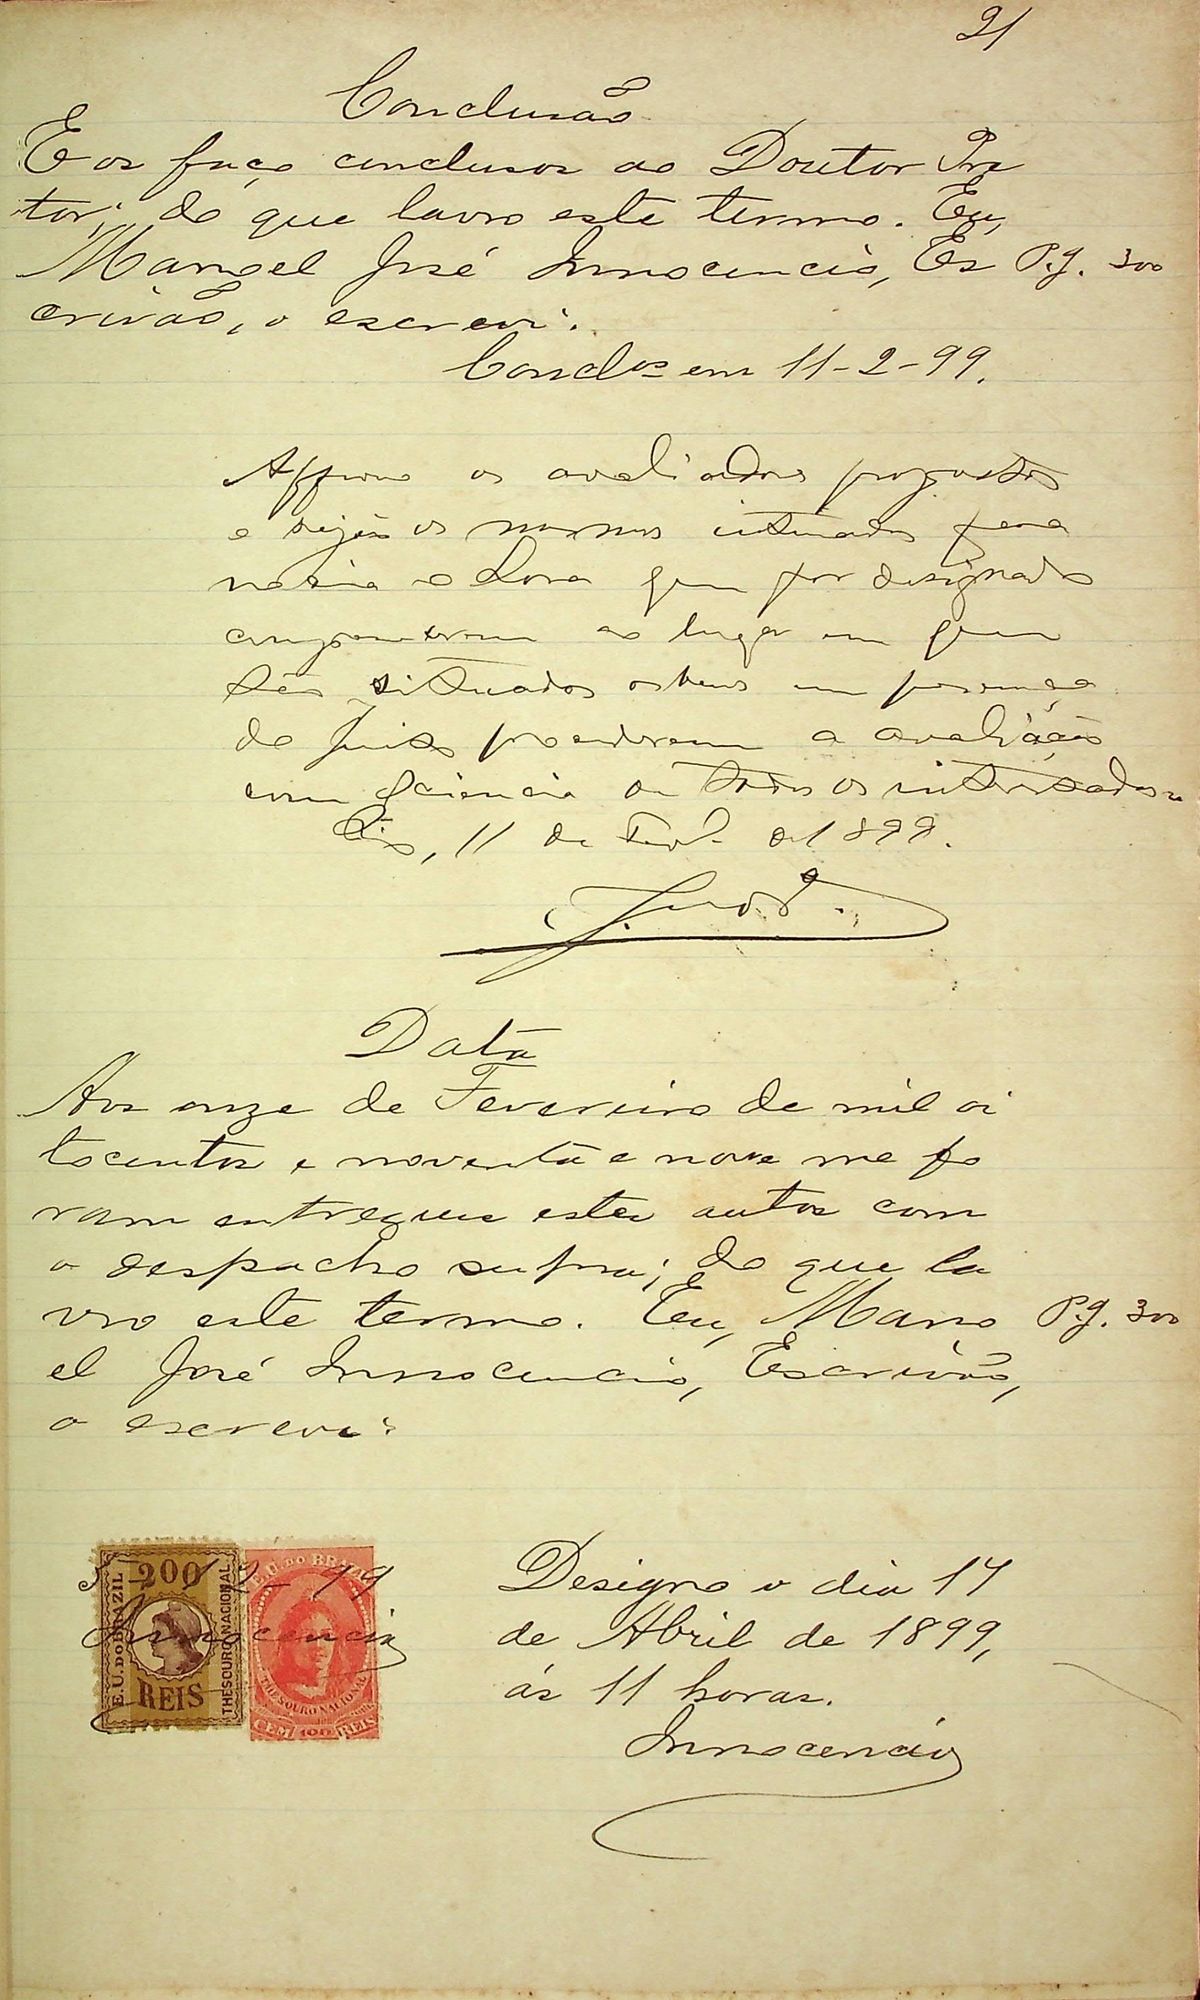 21
Conclusão
E os faço conclusos ao Doutor Pre
tor; do que lavro este termo. Eu,
Manoel José Innocencio, Es P.g. 300
crivão, o escrevi.
Concl.os em 11-2-99.
Approvo os avaliadores propostos
e sejão os mesmos intimados para
no dia e hora que for designado
comparecerem ao lugar em que
são situados os bens em presença
do Juizo procederem a avaliação
com sciencia de todos os interessados.
Rio, 11 de Fever.º de 1899.
Data
Aos onze de Fevereiro de mil oi
tocentos e noventa e nove me fo
ram entregues estes autos com
o despacho supra; do que la
vro este termo. Eu, Mano P.g. 300
el José Innocencio, Escrivão,
o escrevi.
200
E.U. DO BRAZIL
THESOURO NACIONAL
REIS
E.U. DO BRAZIL
THESOURO NACIONAL
CEM 100 REIS
Innocencio
Designo o dia 14
de Abril de 1899,
ás 11 horas.
Innocencio